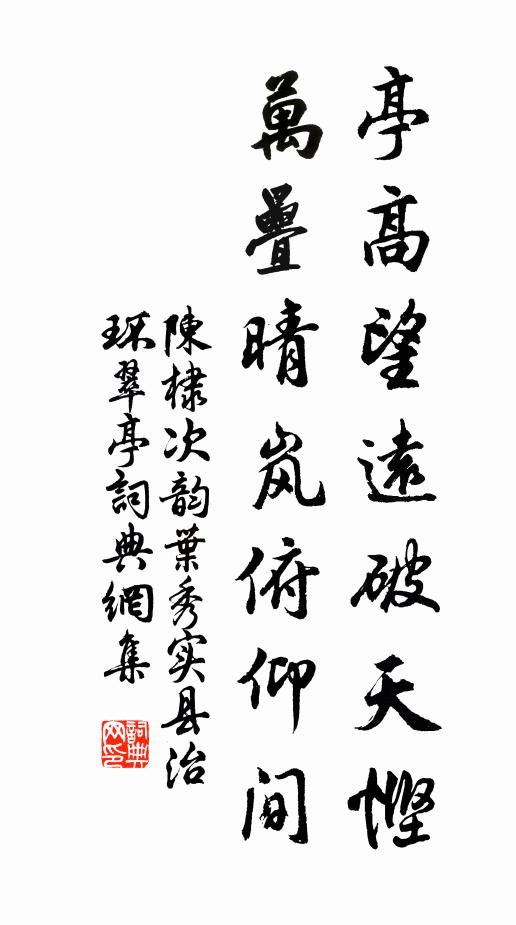 亭高望遠破天慳
萬疊晴岚俯仰间
陳棣次韵葉秀实县治
环翠亭詞典網集
詞典网印